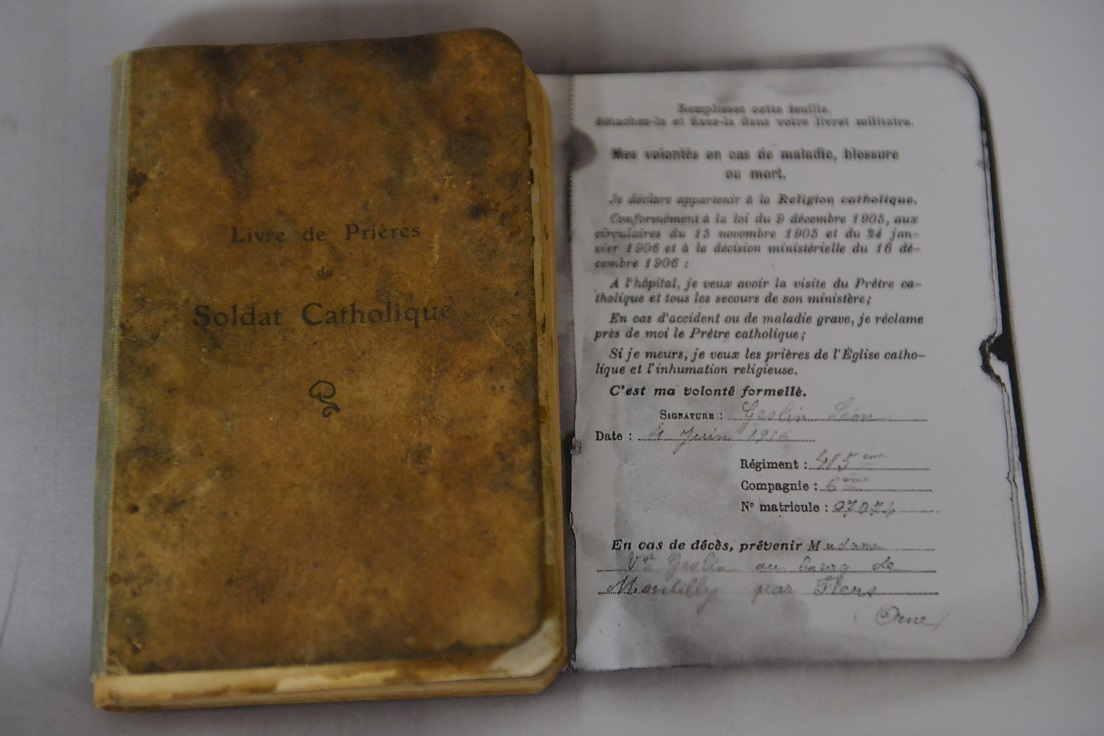 Livre de Prières
du
Soldat Catholique
Remplissez cette feuille,
détachez-la et fixez-la dans votre livret militaire.
Mes volontés en cas de maladie, blessure
ou mort.
Je déclare appartenir à la Religion catholique.
Conformément à la loi du 9 décembre 1905, aux
circulaires du 15 novembre 1905 et du 24 jan-
vier 1906 et à la décision ministérielle du 16 dé-
cembre 1906 :
A l'hôpital, je veux avoir la visite du Prêtre ca-
tholique et tous les secours de son ministère;
En cas d'accident ou de maladie grave, je réclame
près de moi le Prêtre catholique;
Si je meurs, je veux les prières de l'Église catho-
lique et l'inhumation religieuse.
C'est ma volonté formelle.
SIGNATURE : Geslin Léon
Date : 4 Juin 1916
Régiment : 415 ème
Compagnie : 6 ème
N° matricule : 07074
En cas de décès, prévenir Madame
Vve Geslin au bourg de
Mantilly par Flers
(Orne)